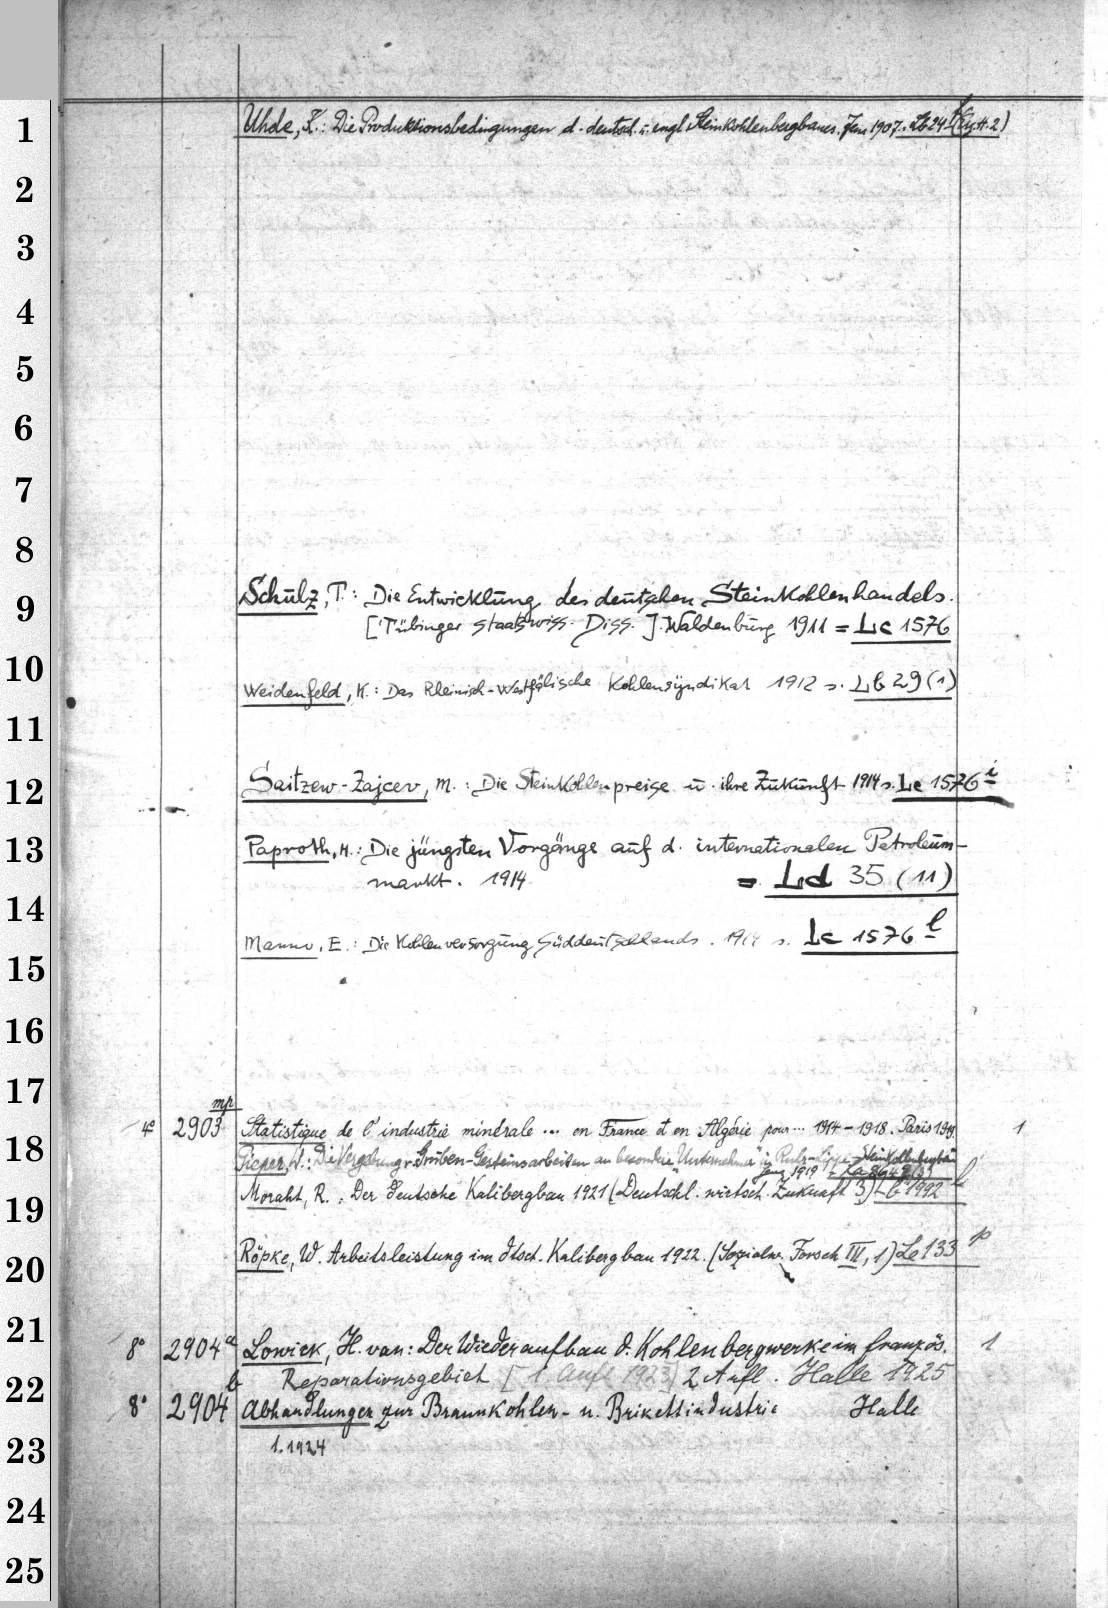 1
Uhde, K.: Die Produktionsbedingungen d. deutsch. u. engl. Steinkohlenbergbaues. Jena 1907. = Lb 24 f (Erg. H. 2)
2
3
4
5
6
7
8
9
Schulz, T.: Die Entwicklung des deutschen Steinkohlenhandels.
[Tübinger staatswiss. Diss.]. Waldenburg 1911 = Lc 1576
10
Weidenfeld, K.: Das Rheinisch-Westfälische Kohlensyndikat 1912 s. Lb 29 (1)
11
12
Saitzew-Zajcev, M.: Die Steinkohlenpreise u. ihre Zukunft 1914 s. Lc 1576 i
13
Paproth, H.: Die jüngsten Vorgänge auf d. internationalen Petroleum-
markt. 1914 = Ld 35 (11)
14
Manno, E.: Die Kohlenversorgung Süddeutschlands. 1914 s. Lc 1576 l
15
16
17
18
4° 2903 mp Statistique de l'industrie minérale ... en France et en Algérie pour ... 1914-1918. Paris 1
Pieper, W.: Die Vergebung v. Gruben-Gesteinsarbeiten an besondere "Unternehmer" im Ruhr-Lippe-Steinkohlenbergbau
Jena 1919
19
Moraht, R.: Der deutsche Kalibergbau 1921 (Deutschl. wirtsch. Zukunft 3) Lb 1992
20
Röpke, W. Arbeitsleistung im dtsch. Kalibergbau 1922. (Sozialw. Forsch III, 1) Le 133 p
21
8° 2904 a Lowick, H. van: Der Wiederaufbau d. Kohlenbergwerke im französ. 1
22
Reparationsgebiet [1. Aufl 1923] 2 Aufl. Halle 1925
8° 2904 b Abhandlungen zur Braunkohlen- u. Brikettindustrie Halle
23
1. 1924
24
25